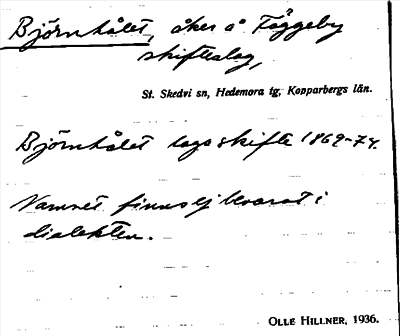 Björnhålet, åker å Fäggeby
skifteslag,
St. Skedvi sn, Hedemora tg, Kopparbergs län.
Björnhålet laga skifte 1869-74.
Namnet finns ej kvar i
dialekten.
OLLE HILLNER, 1936.